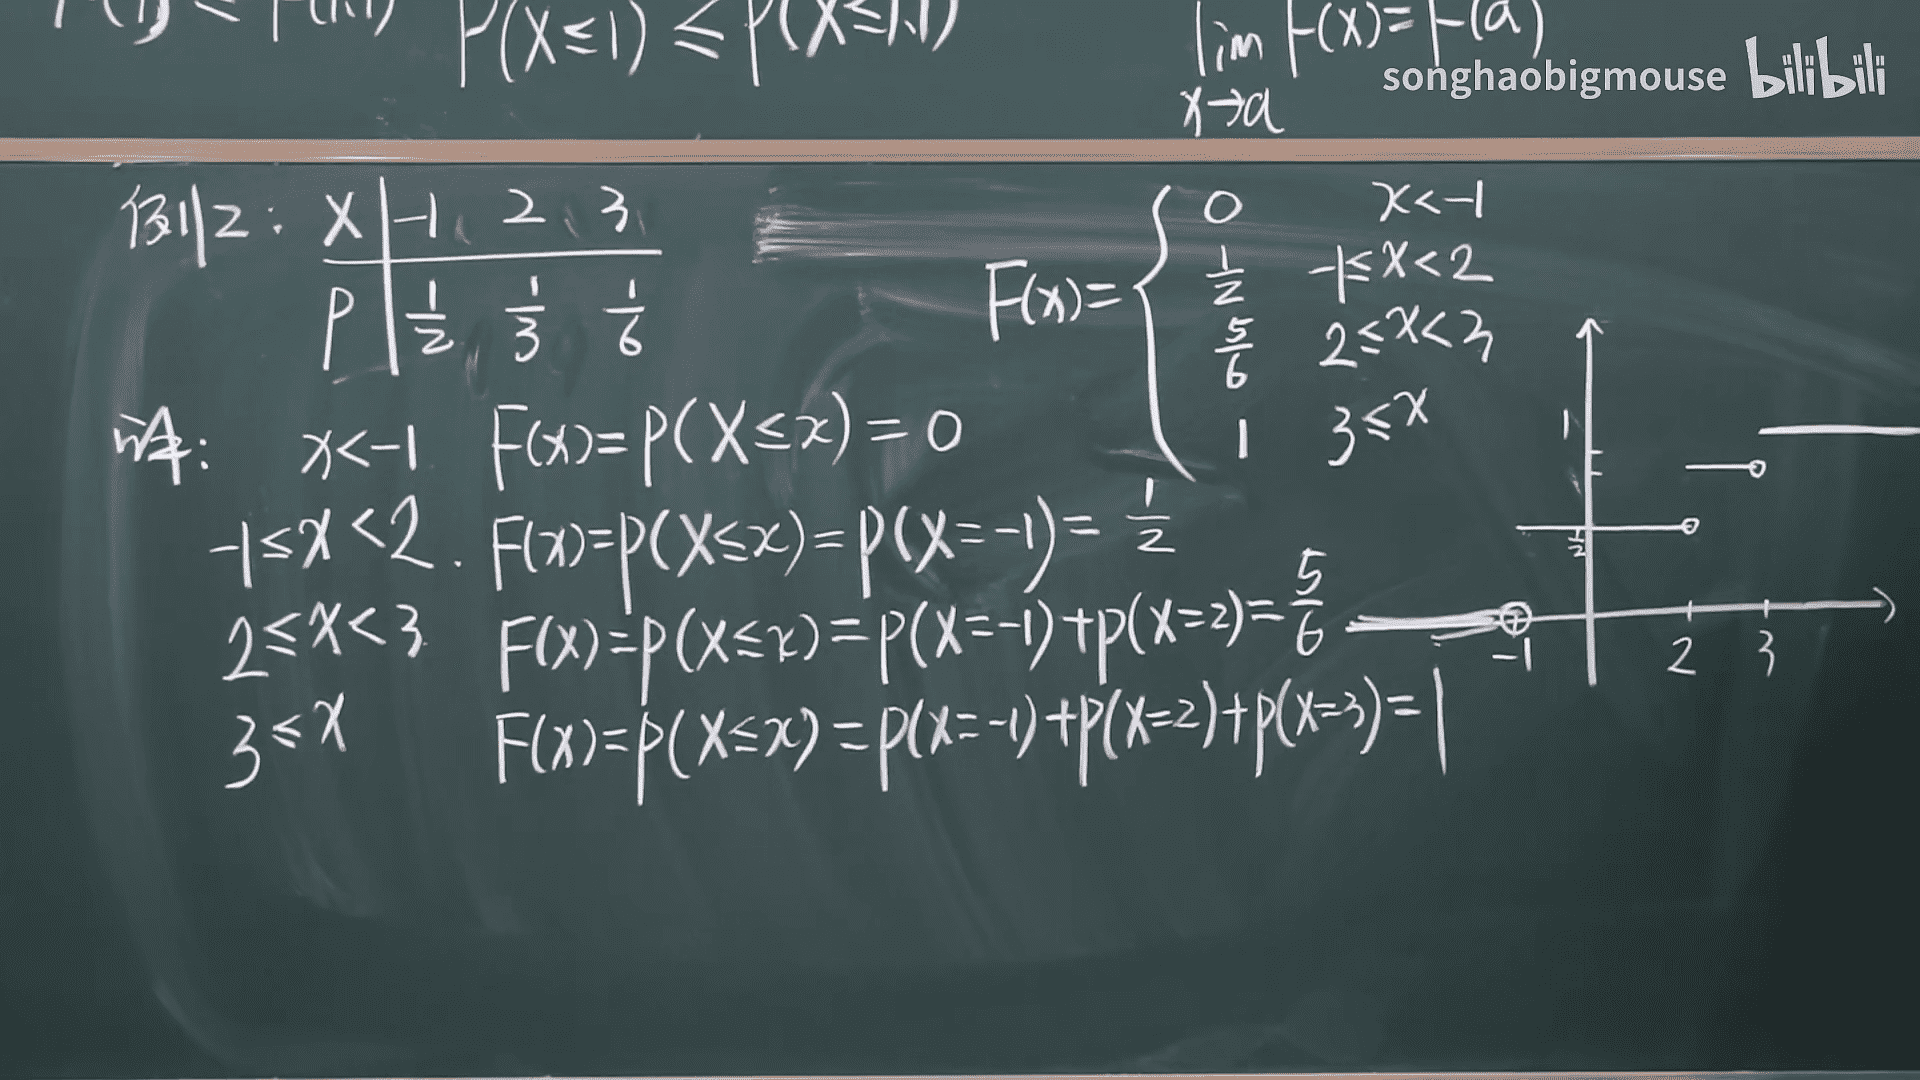 P(X≤1) ≤ P(X≤1.1)
lim F(x)=F(a)
x→a
songhaobigmouse bilibili
例2: X -1 2 3
P 1/2 1/3 1/6
F(x)= { 0 x<-1
1/2 -1≤x<2
5/6 2≤x<3
1 3≤x
解: x<-1 F(x)=P(X≤x)=0
-1≤x<2. F(x)=P(X≤x)=P(X=-1)=1/2
2≤x<3. F(x)=P(X≤x)=P(X=-1)+P(X=2)=5/6
3≤x F(x)=P(X≤x)=P(X=-1)+P(X=2)+P(X=3)=1
1
1/2
-1 2 3